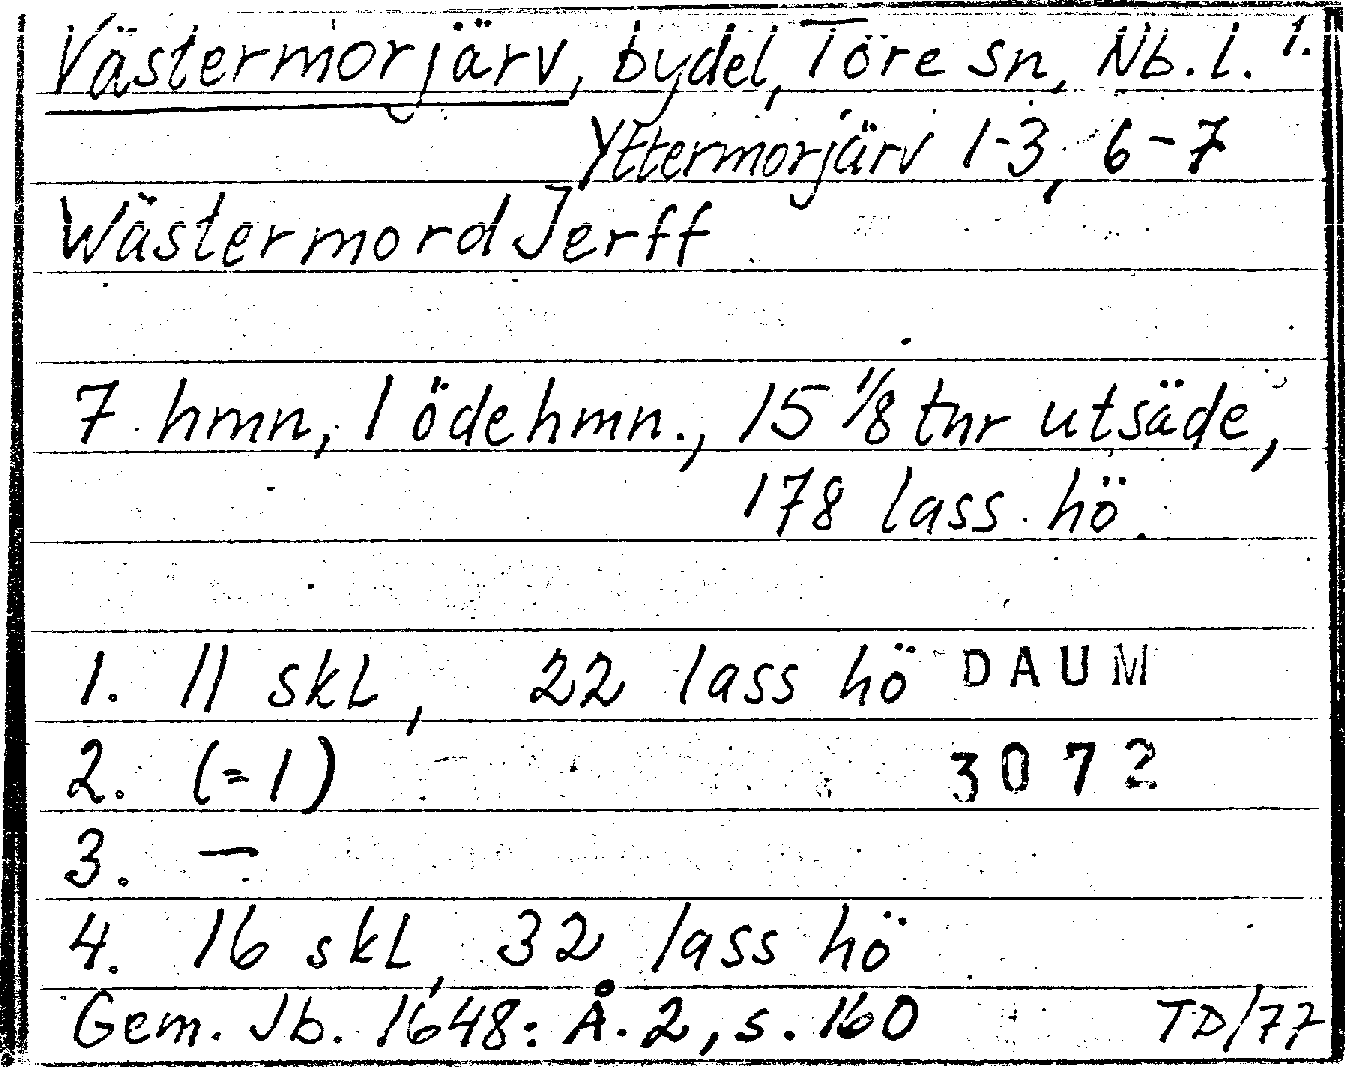 Västermorjärv, bydel, Töre sn, Nb. l. 1.
Yttermorjärv 1-3, 6-7
Wästermord Jerff
7 hmn, 1 ödehmn., 15 1/8 tnr utsäde,
178 lass hö.
1. 11 skL, 22 lass hö DAUM
2. (=1) 3072
3. —
4. 16 skL, 32 lass hö
Gem. Jb. 1648: Å. 2, s. 160 TD/77